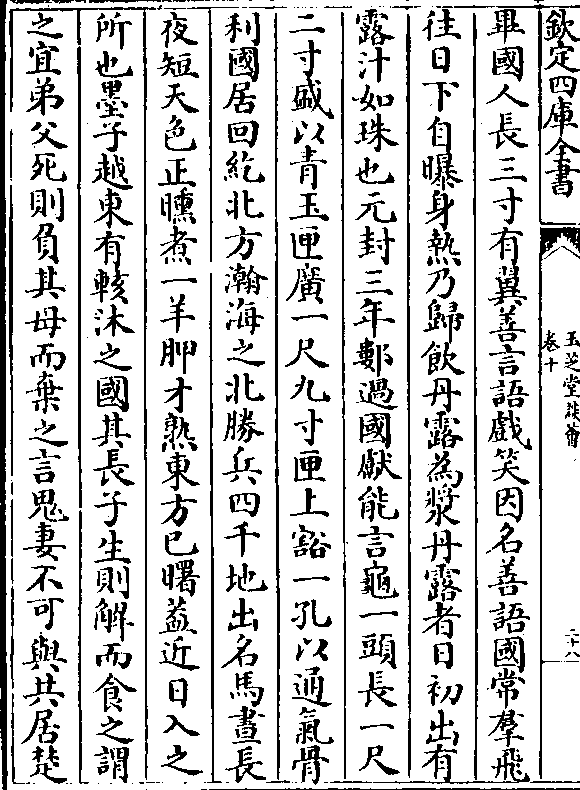 欽定四庫全書
玉芝堂談薈
卷十
二十八
畢國人長三寸有翼善言語戲笑因名善語國常羣飛
往日下自曝身熱乃歸飲丹露為漿丹露者日初出有
露汁如珠也元封三年鄻過國獻能言龜一頭長一尺
二寸盛以青玉匣廣一尺九寸匣上豁一孔以通氣骨
利國居回紇北方瀚海之北勝兵四千地出名馬晝長
夜短天色正曛煮一羊胛才熟東方已曙葢近日入之
所也墨子越東有輆沐之國其長子生則解而食之謂
之宜弟父死則負其母而棄之言鬼妻不可與共居楚